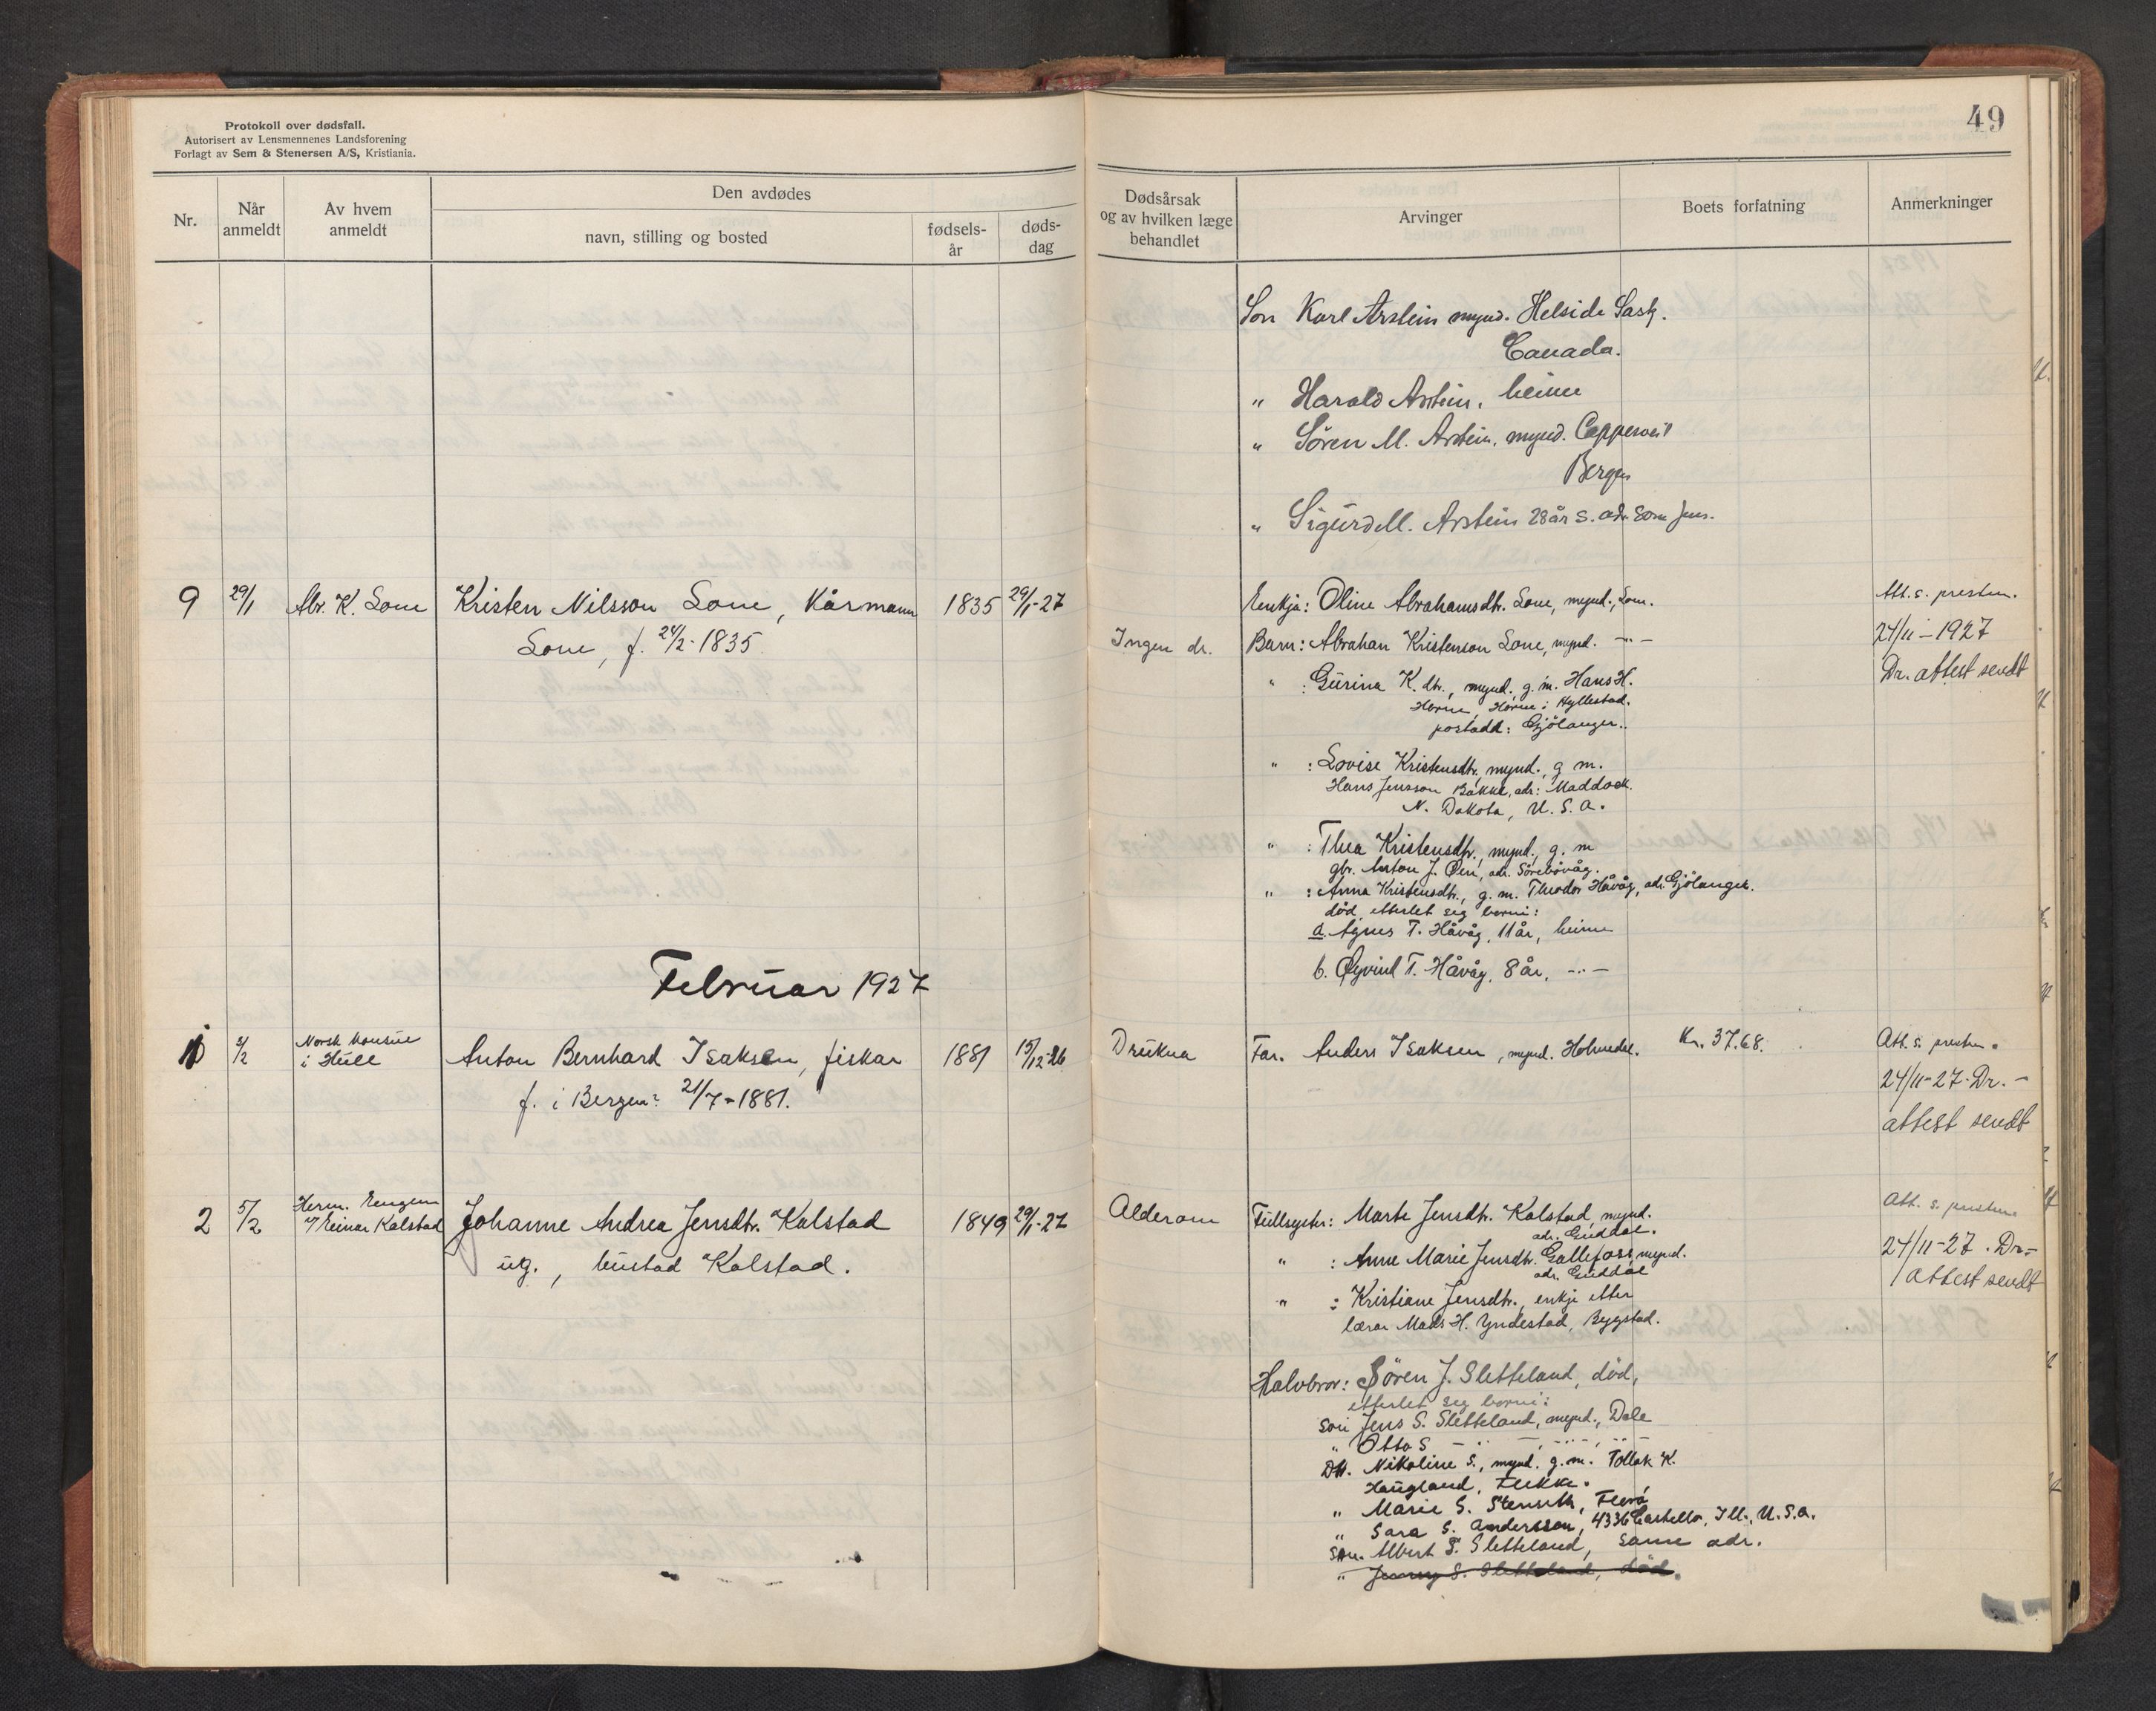 Protokoll over dødsfall.
Autorisert av Lensmennenes Landsforening
Forlagt av Sem & Stenersen A/S, Kristiania.
Nr.
Når anmeldt
Av hvem anmeldt
Den avdødes
navn, stilling og bosted
fødsels-år
døds-dag
49
Dødsårsak
og av hvilken læge
behandlet
Arvinger
Boets forfatning
Anmerkninger
Son Karl Arstein mynd. Helside Sask.
Canada.
" Harald Arstein, heime
" Sören M. Arstein, mynd.
Bergen
" Sigurd M. Arstein 28 år s. adr. som Jens.
9 29/1 Abr. K. Sone Kristen Nilsson Sone, Kårmann 1835 29/1-27
Sone, f. 24/2-1835
Ingen dr.
Enkja: Oline Abrahamsdtr. Sone, mynd., Sone.
Barn: Abrahan Kristenson Sone, mynd. -"-
" : Gurina K. dtr., mynd., g. m. Hans H.
Horne, Horne i Hyllestad.
postadr: Gjölanger.
" : Lovise Kristensdtr., mynd., g m.
Hans Jensson Bakke, adr: Maddock.
N. Dakota, U. S. A.
" : Thea Kristensdtr., mynd., g. m
gbr. Anton J. Øen, adr. Sörebövåg.
" : Anna Kristensdtr., g. m. Theodor Håvåg, adr. Gjölanger.
död, etterlet seg borni:
a. Agnes T. Håvåg, 11 år, heime
b. Øyvind T. Håvåg, 8 år, -"-
Att. s. presten.
24/11-1927
Dr. attest sendt
Februar 1927
1 3/2 Norsk konsul
i Hull
Anton Bernhard Isaksen, fiskar 1881 15/12-26
f. i Bergen? 21/7-1881.
Drukna
Far. Anders Isaksen, mynd. Holmedal. Kr. 37.68.
Att. s. presten.
24/11-27. Dr. -
attest sendt
2 5/2 Herm. Engen
v/ Einar Kalstad
Johanne Andrea Jensdtr. Kalstad 1849 29/1-27
ug., bustad Kalstad.
Alderom
Fullsyster: Marte Jensdtr. Kalstad, mynd.
adr. Guddal.
" : Anne Marie Jensdtr. Gallefoss, mynd.
adr. Guddal
" : Kristiane Jensdtr., enkje etter
lærar Mads H. Yndestad, Bygstad.
Halvbror: Sören J. Sletteland, död,
etterlet seg borni:
son Jens S. Sletteland, mynd., Dale
" Otto S -"-, -"-, -"-
Dtr. Nikoline S., mynd. g. m. Tollak K.
Haugland, Flekke.
" Marie S. Stenseth, Florö
" Sara S. Anderssen, 4336 Cortello, Ill., U. S. A.
son. Albert S. Sletteland, same adr.
" Jenny S. Sletteland, död.
Att. s. presten
24/11-27. Dr.-
attest sendt